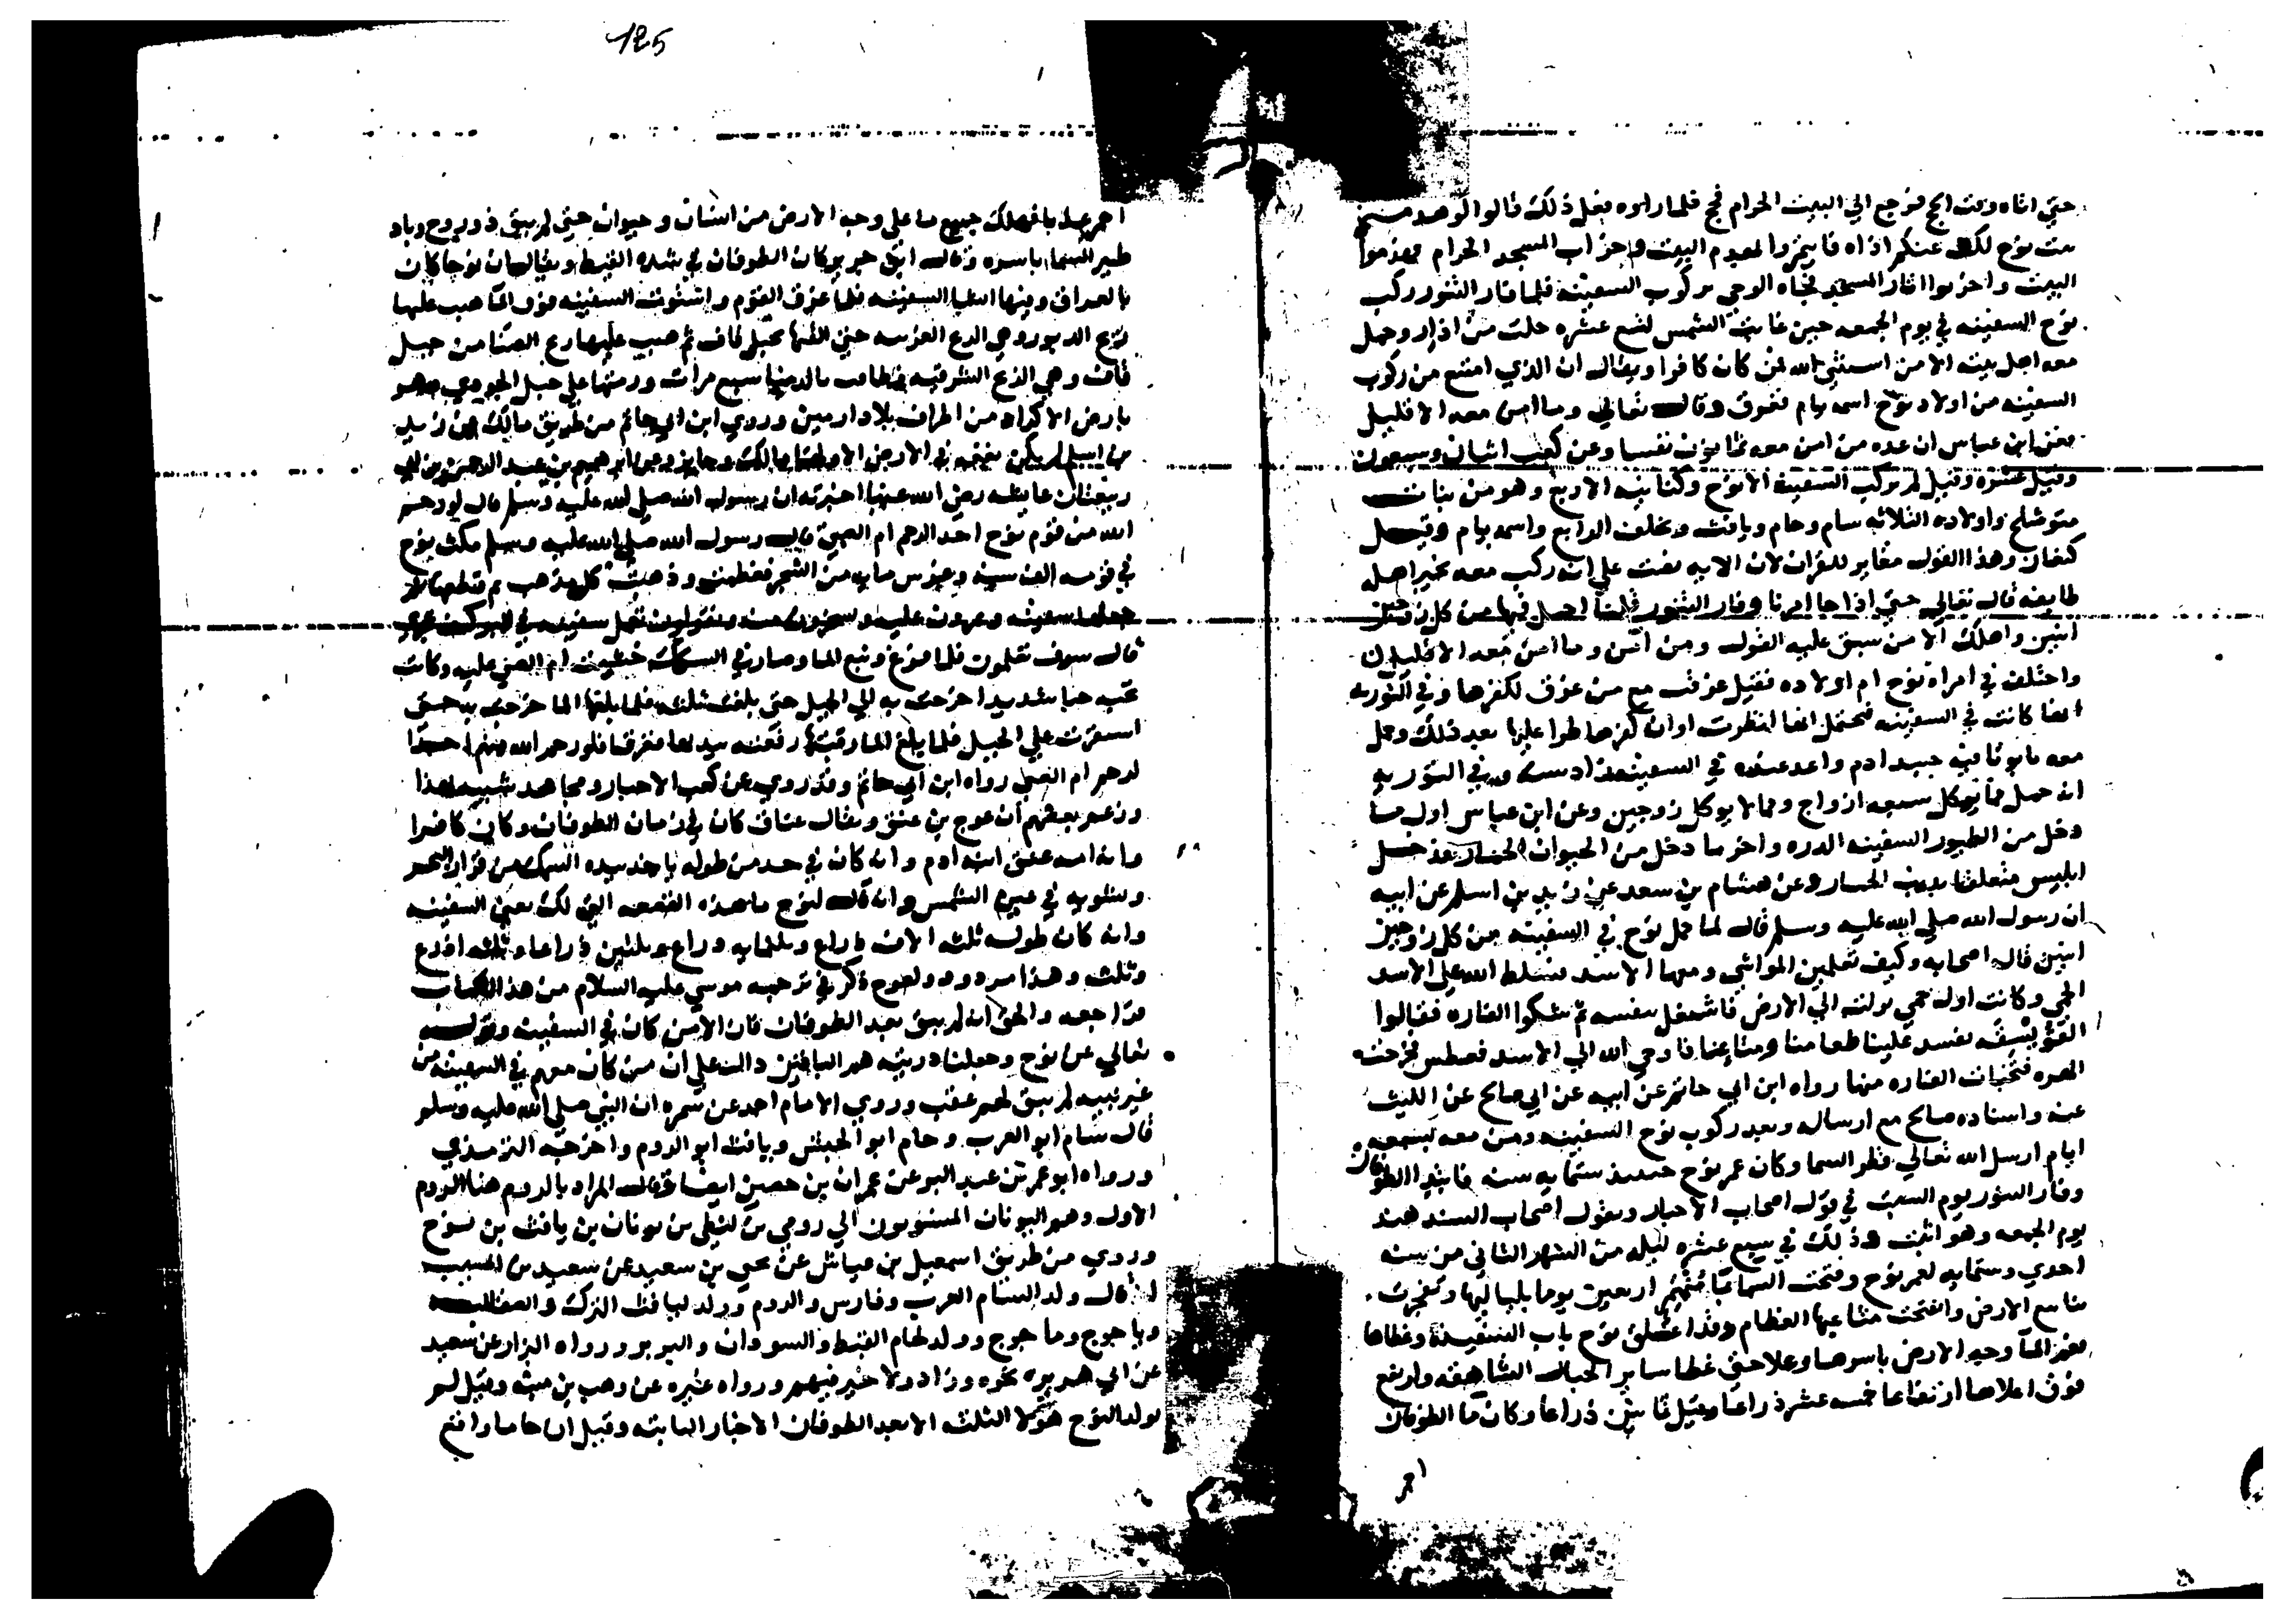 125
حتي اتاه وقت الحج فرجع الي البيت الحرام فحج فلما راوه فعل ذلك قالوا لو هدمتم
بيت نوح لكف عنكم اذاه فابتدروا لهدم البيت واخراب المسجد الحرام فهدموا
البيت واخربوا المسجد فجاه الوحي بركوب السفينه فلما فار التنور ركب
نوح السفينه في يوم الجمعه حين غابت الشمس لتسع عشره خلت من اذار وحمل
معه اهل بيته الا من استثني الله لمن كان كافرا ويقال ان الذي امتنع من ركوب
السفينه من اولاد نوح اسمه يام فغرق وقال تعالي وما امن معه الا قليل
فعن ابن عباس ان عده من امن معه ثمانون نفسا وعن كعب اثنان وسبعون
وقيل عشره وقيل لم يركب السفينة الا نوح وكناينه الاربع وهو من بنات
متوشلح واولاده الثلاثه سام وحام ويافث وتخلف الرابع واسمه يام وقيل
كنعان وهذا القول مغاير للقران لان الايه نصت علي انه ركب معه غير اهله
طايفه قال تعالي حتي اذا جا امرنا وفار التنور قلنا احمل فيها من كل زوجين
اثنين واهلك الا من سبق عليه القول ومن امن وما امن معه الا قليل
واختلف في امراه نوح ام اولاده فقيل غرقت مع من غرق لكفرها وفي التوريه
انها كانت في السفينه فيحتمل انها انظرت او ان كفرها طرا عليها بعد ذلك وحمل
معه تابوتا فيه جسد ادم في السفينه وفي التوريه
انه حمل مما يوكل سبعه ازواج ومما لا يوكل زوجين وعن ابن عباس اول ما
دخل من الطيور السفينه الدره واخر ما دخل من الحيوان الحمار فدخل
ابليس متعلقا بذنب الحمار وعن هشام بن سعد عن زيد بن اسلم عن ابيه
ان رسول الله صلي الله عليه وسلم قال لما حمل نوح في السفينه من كل زوجين
اثنين قال اصحابه وكيف تطمين المواشي ومعها الاسد فسلط الله علي الاسد
الحمي وكانت اول حمي نزلت الي الارض فاشتغل بنفسه ثم شكوا الفاره فقالوا
الفويسقه تفسد علينا طعامنا ومتاعنا فاوحي الله الي الاسد فعطس فخرجت
الهره فتخبات الفاره منها رواه ابن ابي حاتم عن ابيه عن ابي صالح عن الليث
عنه واسناده صالح مع ارساله وبعد ركوب نوح السفينه ومن معه بسبعه
ايام ارسل الله تعالي مطر السما وكان عمر نوح حينيذ ستمايه سنه فابتدا الطوفان
وفار التنور يوم السبت في قول اصحاب الاخبار ويقول اصحاب السند هند
يوم الجمعه وهو اثبت وذلك في سبع عشره ليله من الشهر الثاني من سنه
احدي وستمايه لعمر نوح وفتحت السما بما منهمر اربعين يوما بلياليها وتفجرت
ينابيع الارض وانفتحت منابعها العظام وقد اغلق نوح باب السفينة وغطاها
فغمر الما وجه الارض باسرها وعلا حتي غطا ساير الجبال الشاهقه وارتفع
فوق اعلاها ارتفاعا خمسه عشر ذراعا وقيل ثمانين ذراعا وكان ما الطوفان
احمر
احمر عبيطا فهلك جميع ما علي وجه الارض من انسان وحيوان حتي لم يبق ذو روح وباد
طير السما باسره وقال ابن جرير كان الطوفان في شده القيظ ويقال ان نوحا كان
بالعراق وبنها انشا السفينه فلما غرق القوم واستوت السفينه فوق الما هب عليها
ريح الدبور وهي الريح الغربيه حتي القتها بجبل قاف ثم هب عليها ريح الصبا من جبل
قاف وهي الريح الشرقيه فطافت بالدنيا سبع مرات ورمتها علي جبل الجودي وهو
بارض الاكراد من اطراف بلاد ارمين وروي ابن ابي حاتم من طريق مالك عن زيد
بن اسلم لم يكن بقعه في الارض الا ولها مالك وحايز وعن ابرهيم بن عبد الرحمن بن ابي
ربيعة ان عايشه رضي الله عنها اخبرته ان رسول الله صلي الله عليه وسلم قال لو رحم
الله من قوم نوح احدا لرحم ام الصبي قال رسول الله صلي الله عليه وسلم مكث نوح
في قومه الف سنه وغرس مايه من الشجر فعظمت وذهبت كل مذهب ثم قطعها ثم
جعلها سفينه ويمرون عليه ويسخرون منه ويقولون تعمل سفينه في البر كيف تجري
قال سوف تعلمون فلما فرغ ونبع الما وصار في السكك خشيت ام الصبي عليه وكانت
تحبه حبا شديدا خرجت به الي الجبل حتي بلغت ثلثه فلما بلغها الما خرجت به حتي
استقرت علي الجبل فلما بلغ الما رقبتها رفعته بيديها فغرقا فلو رحم الله منهم احدا
لرحم ام الصبي رواه ابن ابي حاتم وقد روي عن كعب الاحبار ومجاهد شبيه لهذا
وزعم بعضهم ان عوج بن عنق ويقال عناق كان في زمان الطوفان وكان كافرا
وان امه عنق ابنه ادم وانه كان في حد من طوله ياخذ بيده السمك من قرار البحر
ويشويه في عين الشمس وانه قال لنوح ما هذه القصعه التي لك يعني السفينه
وانه كان طوله ثلثه الاف ذراع وثلثمايه ذراع وثلثين ذراعا وثلثه اذرع
وثلث وهذا مردود ولعوج ذكر في ترجمه موسي عليه السلام من هذا الكتاب
فراجعه والحق انه لم يبق بعد الطوفان فان الامن كان في السفينه وقوله
تعالي عن نوح وجعلنا ذريته هم الباقين دال علي ان من كان معهم في السفينه من
غير بنيه لم يبق لهم عقب وروي الامام احمد عن سمره ان النبي صلي الله عليه وسلم
قال سام ابو العرب وحام ابو الحبش ويافث ابو الروم واخرجه الترمذي
ورواه ابو عمر بن عبد البر عن عمران بن حصين ايضا وقال المراد بالروم هنا الروم
الاول وهم اليونان المنسوبون الي رومي بن لنطي بن يونان بن يافث بن نوح
وروي من طريق اسمعيل بن عياش عن يحي بن سعيد عن سعيد بن المسيب
انه قال ولد لسام العرب وفارس والروم وولد ليافث الترك والصقالبه
وياجوج وماجوج وولد لحام القبط والسودان والبربر ورواه البزار عن سعيد
عن ابي هريره نحوه وزاد ولا خير فيهم ورواه غيره عن وهب بن منبه وقيل لم
يولد لنوح هولا الثلثه الا بعد الطوفان الاخبار الثابته وقيل ان حاما واقع